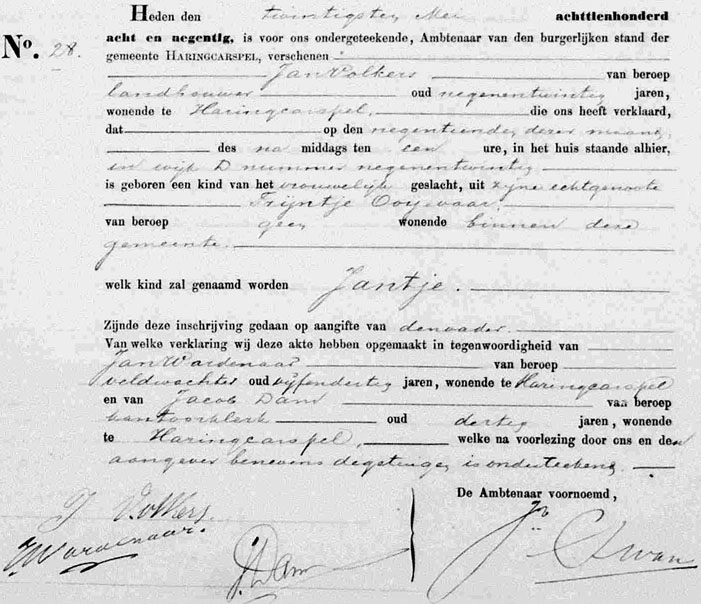 Heden den twintigsten Mei achttienhonderd
No. 28. acht en negentig, is voor ons ondergeteekende, Ambtenaar van den burgerlijken stand der
gemeente HARINGCARSPEL, verschenen
Jan Volkers van beroep
landbouwer oud negenentwintig jaren,
wonende te Haringcarspel, die ons heeft verklaard,
dat op den negentienden dezer maand,
des na middags ten een ure, in het huis staande alhier,
in wijk D nummer negenentwintig
is geboren een kind van het vrouwelijk geslacht, uit zijne echtgenoote
Trijntje Ooijevaar
van beroep geen wonende binnen deze
gemeente.
welk kind zal genaamd worden Jantje.
Zijnde deze inschrijving gedaan op aangifte van den vader.
Van welke verklaring wij deze akte hebben opgemaakt in tegenwoordigheid van
Jan Wardenaar van beroep
veldwachter oud vijfendertig jaren, wonende te Haringcarspel
en van Jacob Dam van beroep
kantoorklerk oud dertig jaren, wonende
te Haringcarspel, welke na voorlezing door ons en den
aangever benevens de getuigen is onderteekend.
De Ambtenaar voornoemd,
J Volkers.
JWardenaar.
J. Dam
Jn Swan